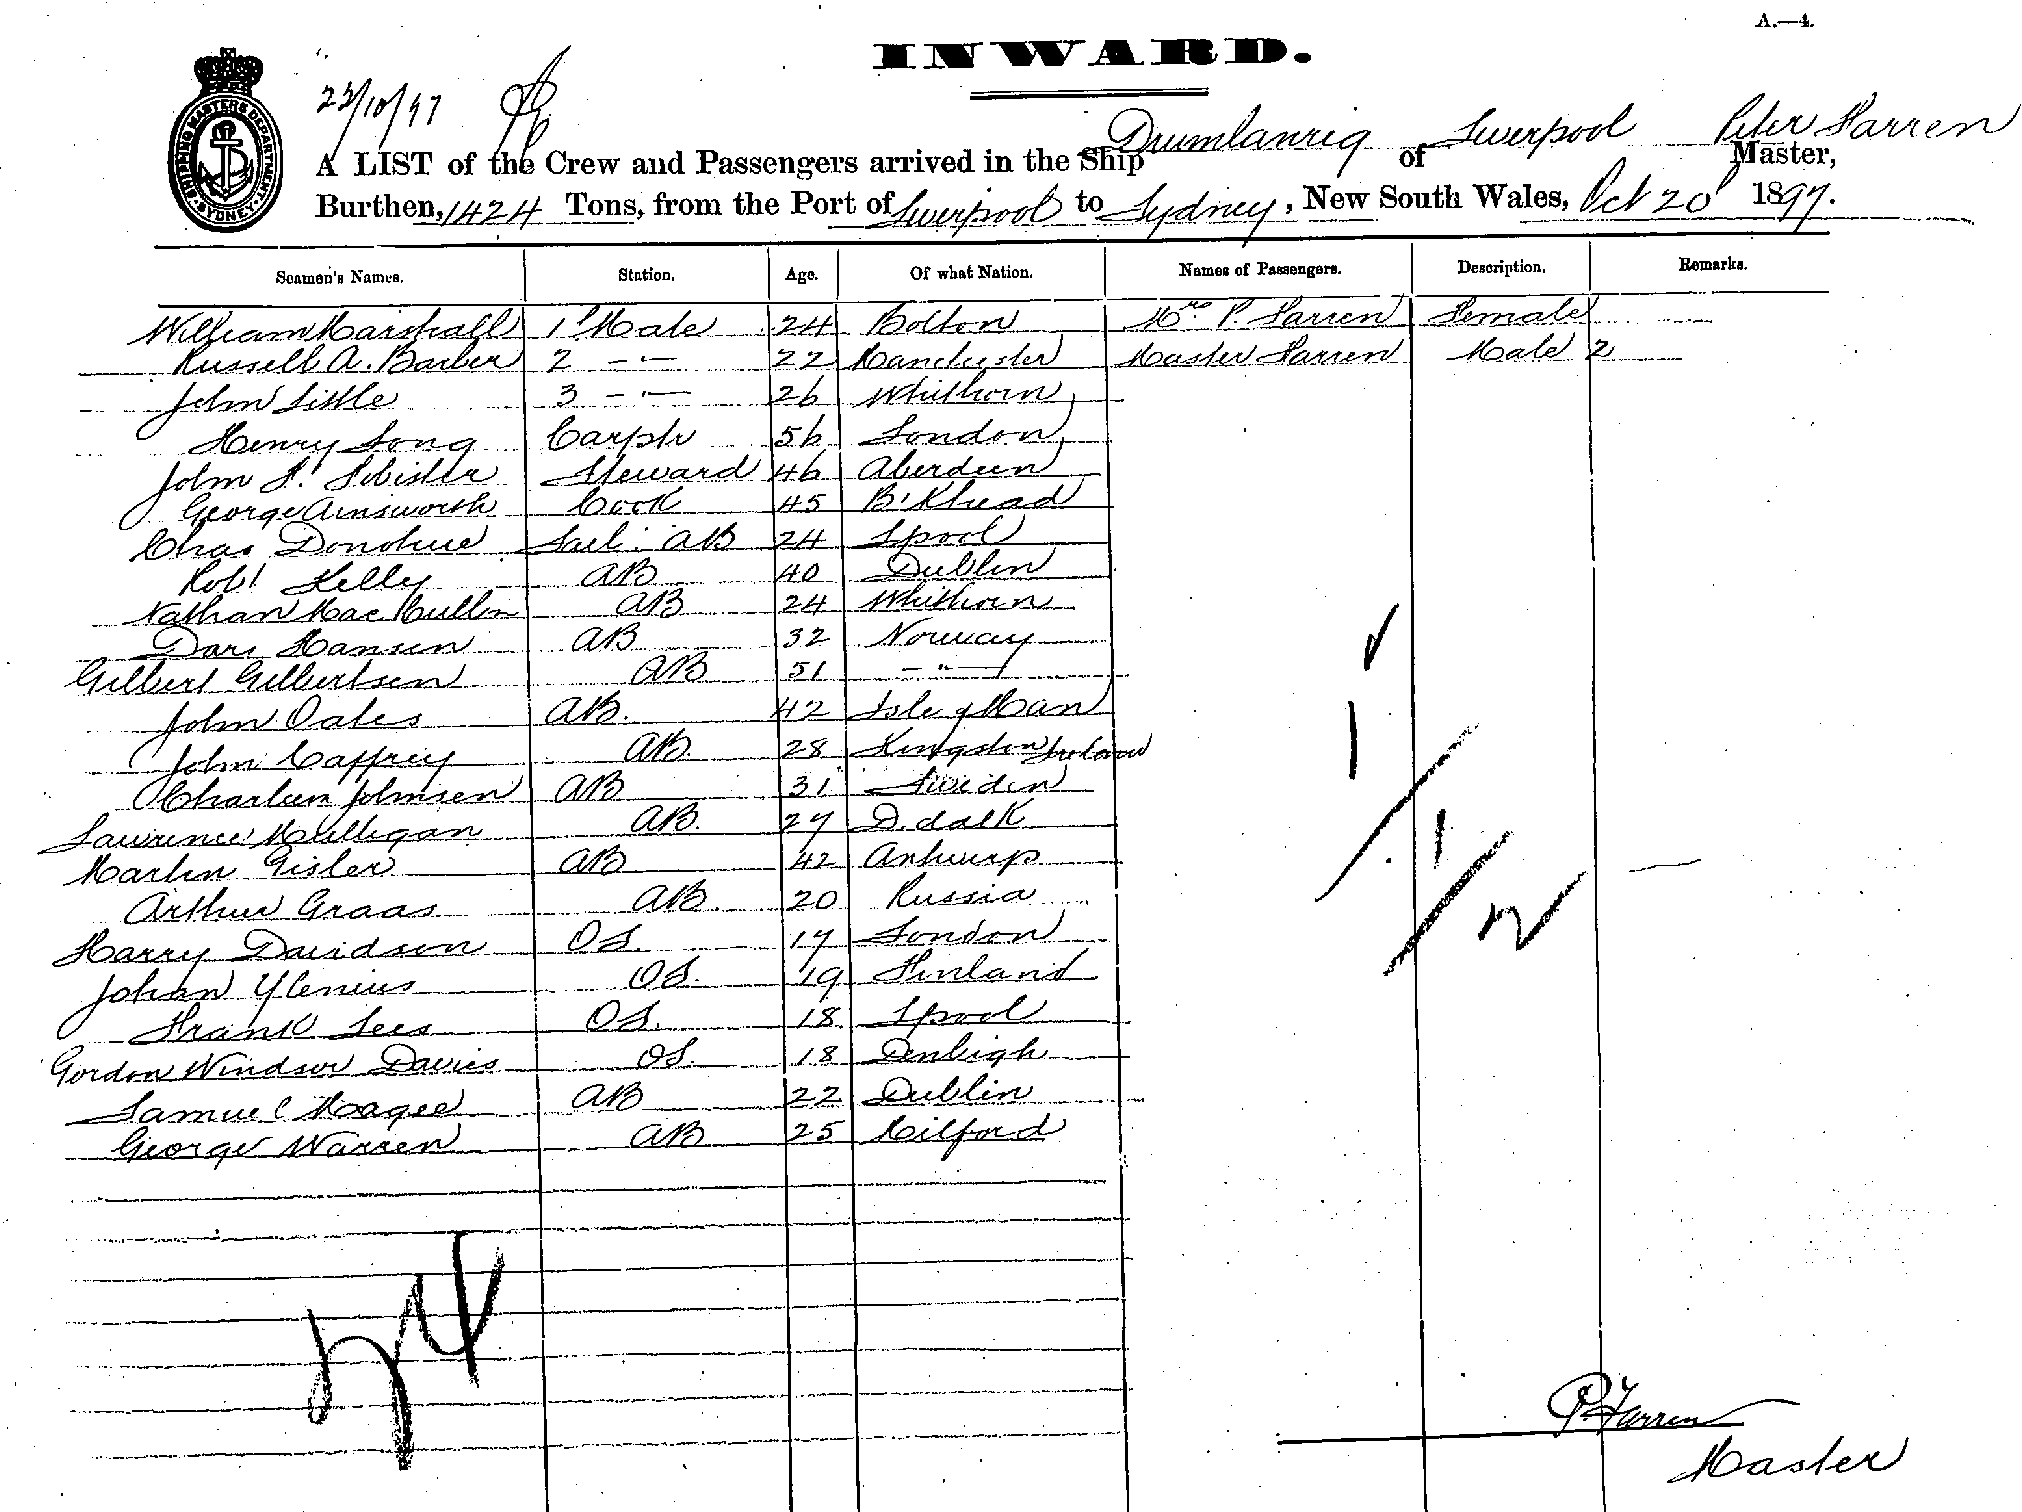 A.—4.
INWARD.
22/10/97
SHIPPING MASTERS DEPARTMENT
SYDNEY
A LIST of the Crew and Passengers arrived in the Ship Drumlanrig of Liverpool Peter Farren Master,
Burthen, 1424 Tons, from the Port of Liverpool to Sydney, New South Wales, Oct 20 1897.
Seamen's Names. Station. Age. Of what Nation. Names of Passengers. Description. Remarks.
William Marshall 1st Mate 24 Bolton Mrs P. Farren Female
Russell A. Barber 2 - " - 22 Manchester Master Farren Male 2
John Little 3 - " - 26 Whithorn
Henry Long Carptr 56 London
John F. Isbister Steward 46 Aberdeen
George Ainsworth Cook 45 B'Khead
Chas Donohue Sail: AB 24 Lpool
Robt Kelly AB 40 Dublin
Nathan MacMullin AB 24 Whithorn
Hansen AB 32 Norway
Gilbert Gilbertsen AB 51 - " -
John Oates AB. 42 Isle of Man
John Caffrey AB. 28 Kingston Ireland
Johnsen AB 31 Sweden
Lawrence Mulligan AB. 27 D.dalk
Martin Gisler AB 42 Antwerp
Arthur Graas AB. 20 Russia
Harry Davidson OS. 17 London
Johan Ylenius OS. 19 Finland
Frank Lees OS. 18 Lpool
Gordon Windsor Davies OS. 18 Denbigh
Samuel Magee AB 22 Dublin
George Warren AB 25 Milford
1
1
2
24
P. Farren
Master